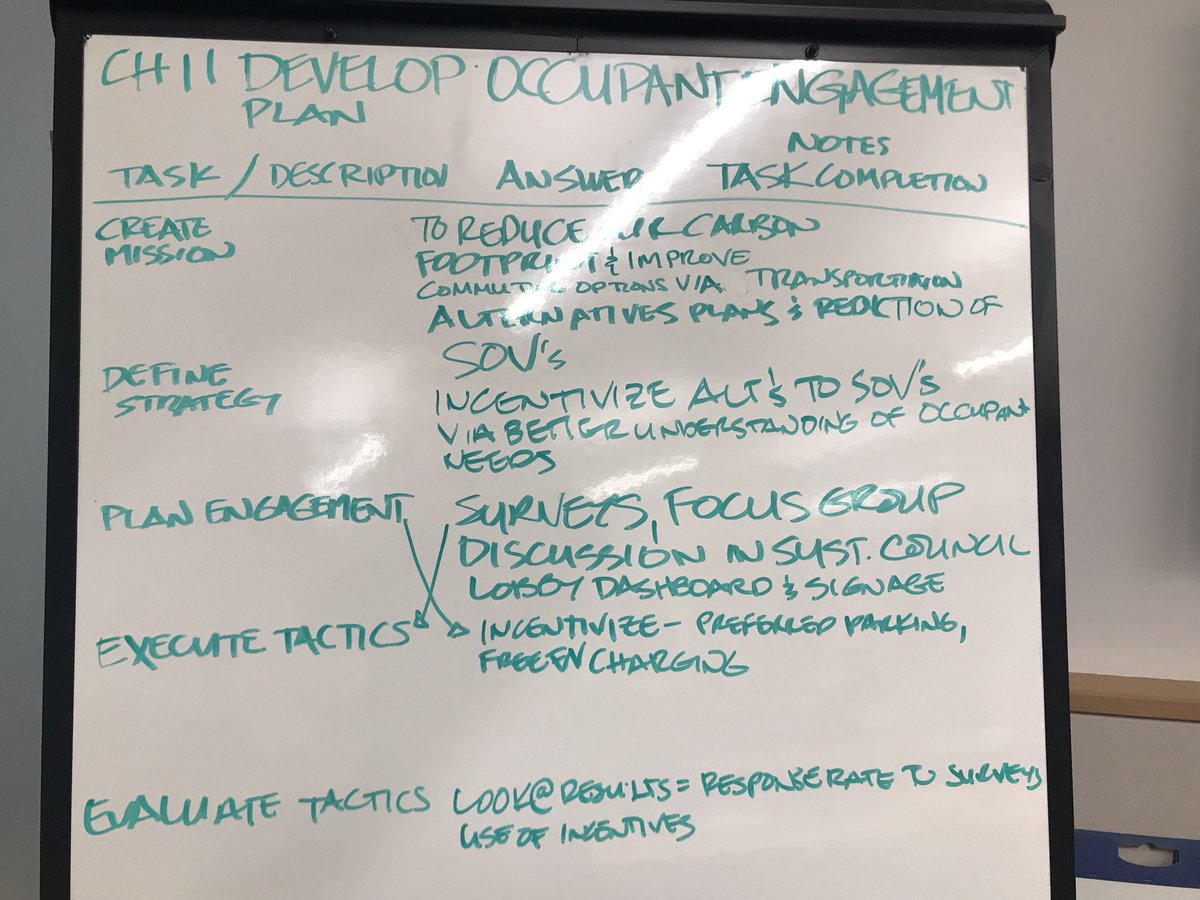 CH11 DEVELOP OCCUPANT ENGAGEMENT
PLAN
NOTES
TASK / DESCRIPTION ANSWER TASK COMPLETION
CREATE MISSION
TO REDUCE OUR CARBON
FOOTPRINT & IMPROVE
COMMUTING OPTIONS VIA TRANSPORTATION
ALTERNATIVES PLANS & REDUCTION OF
SOV's
DEFINE STRATEGY
INCENTIVIZE ALT's TO SOV's
VIA BETTER UNDERSTANDING OF OCCUPANT
NEEDS
PLAN ENGAGEMENT
SURVEYS, FOCUS GROUP
DISCUSSION IN SUST. COUNCIL
LOBBY DASHBOARD & SIGNAGE
EXECUTE TACTICS
INCENTIVIZE - PREFERRED PARKING,
FREE EV CHARGING
EVALUATE TACTICS
LOOK @ RESULTS = RESPONSE RATE TO SURVEYS
USE OF INCENTIVES